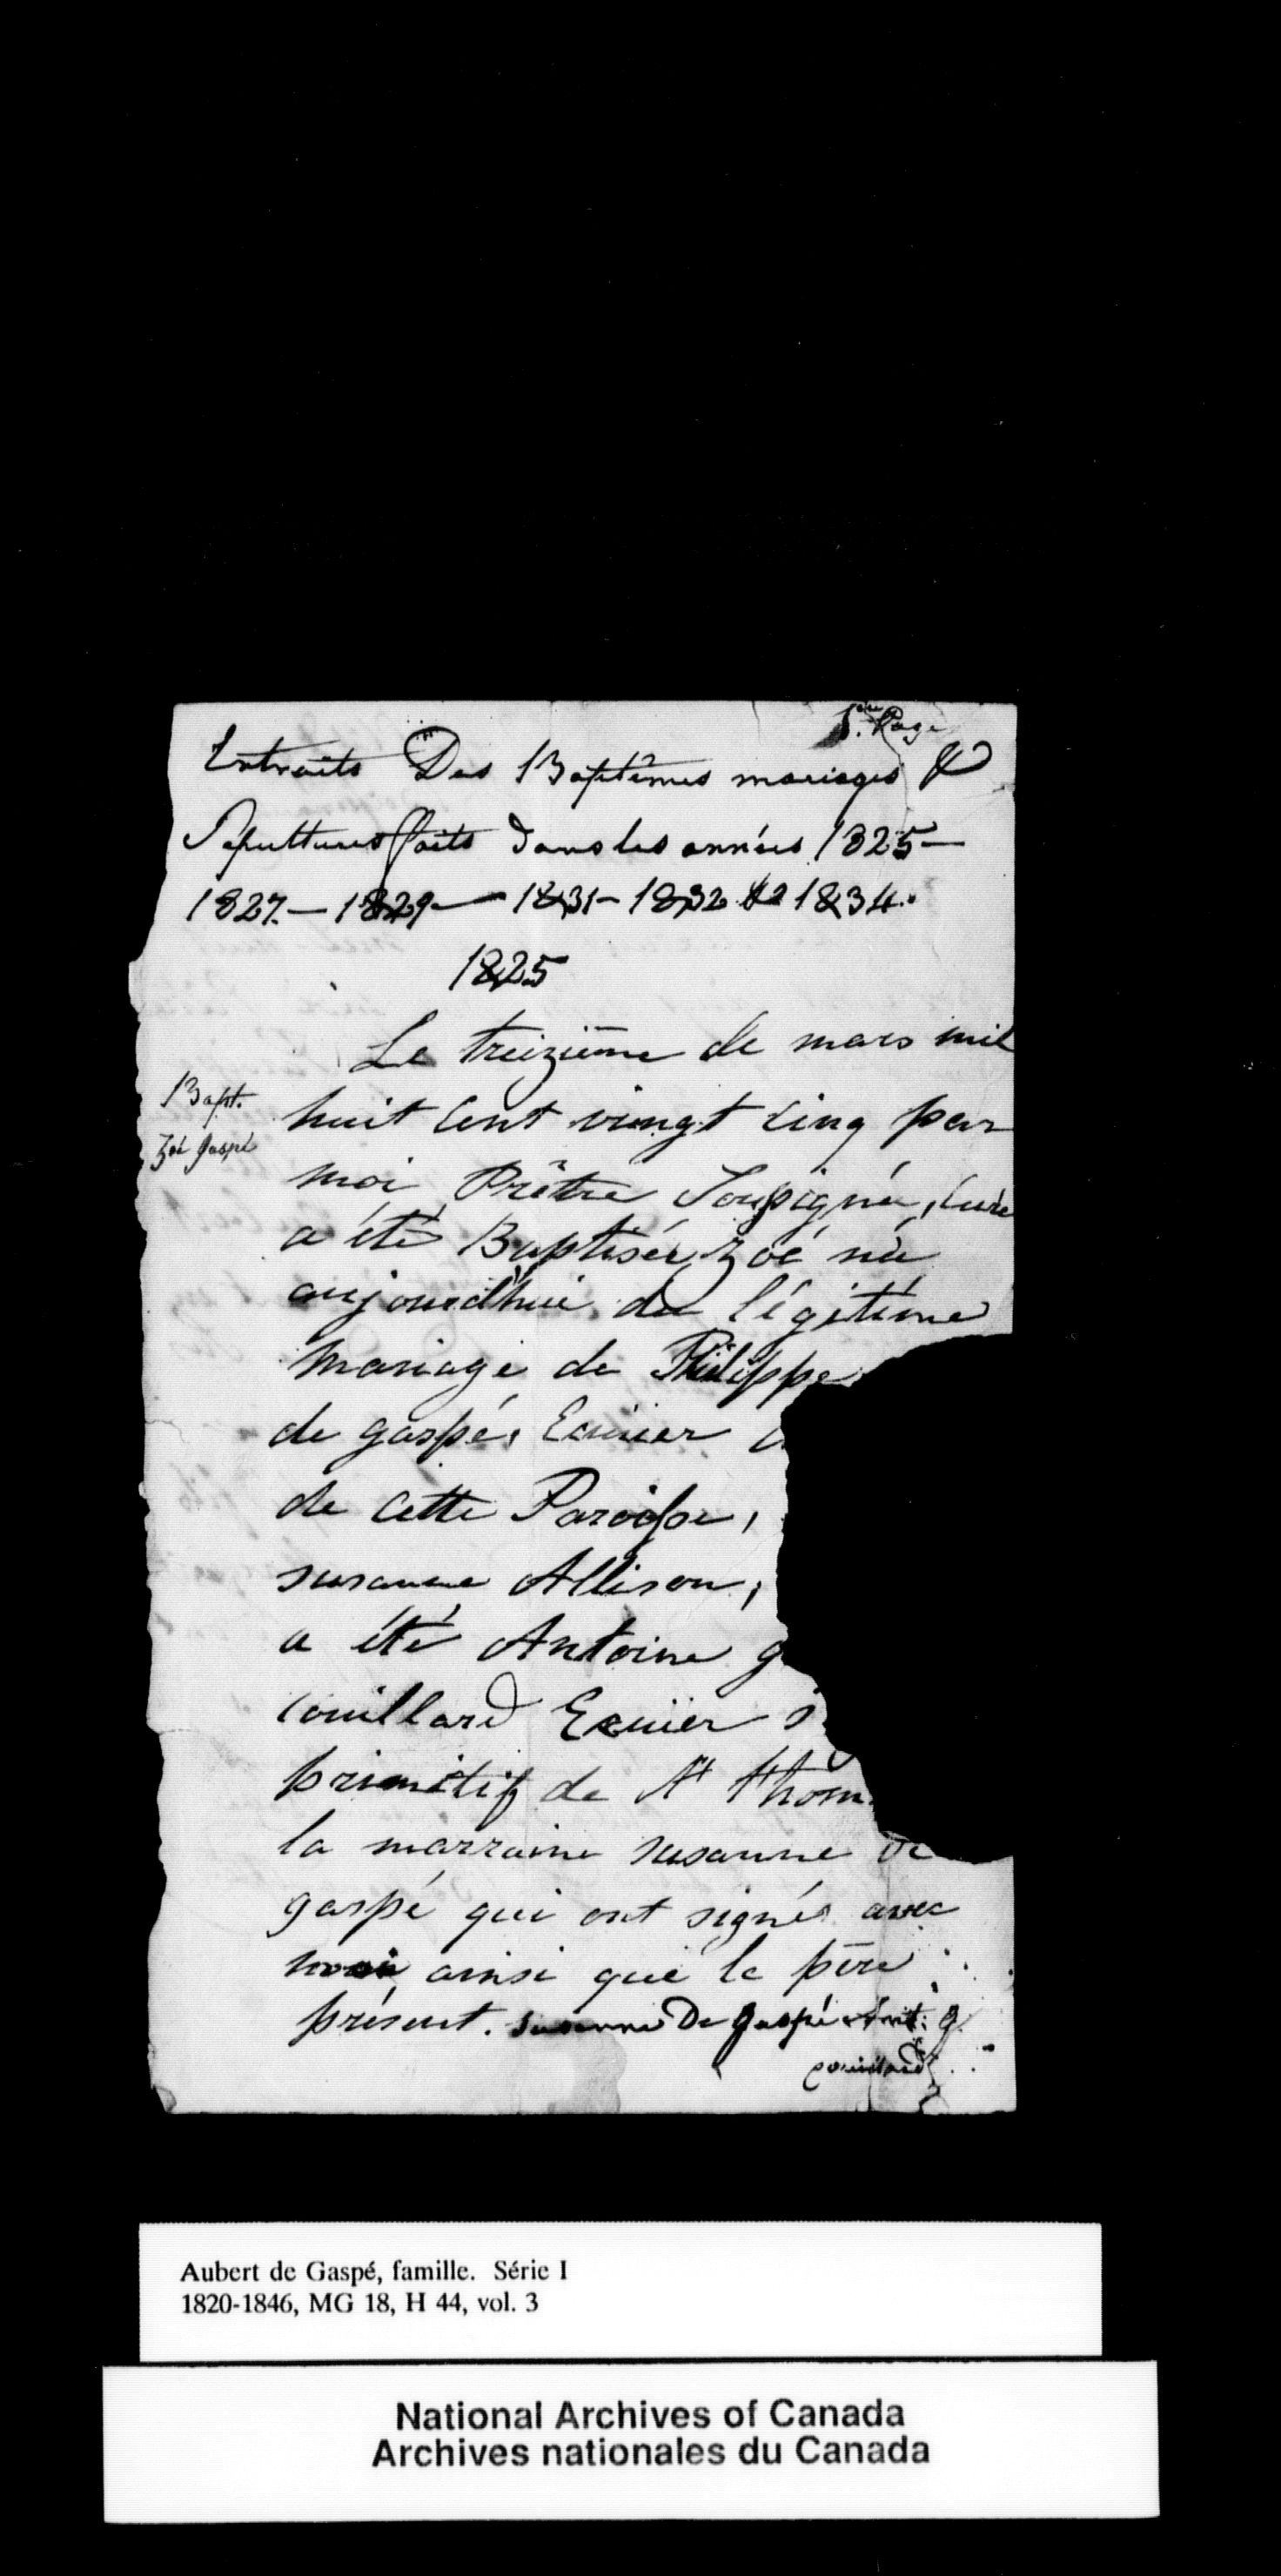 1ere Page
Extraits Des Baptêmes mariages &
Sepultures faits dans les années 1825 —
1827. — 1829 — 1831 - 1832 & 1834.
1825
Le treizième de mars mil
Bapt.
Zoé gaspé
huit cent vingt cinq par
moi Prêtre Soussigné, Curé
a été Baptisée Zoé née
aujourdhui du légitime
mariage de Philippe
de gaspé, Ecuier
de cette Paroisse,
susanne Allison,
a été Antoine g
Couillard Ecuier s
primitif de St thom
la marraine susanne de
gaspé qui ont signés avec
moi ainsi que le père
présent. susanne De gaspé Ant: g.
couillard
Aubert de Gaspé, famille. Série I
1820-1846, MG 18, H 44, vol. 3
National Archives of Canada
Archives nationales du Canada